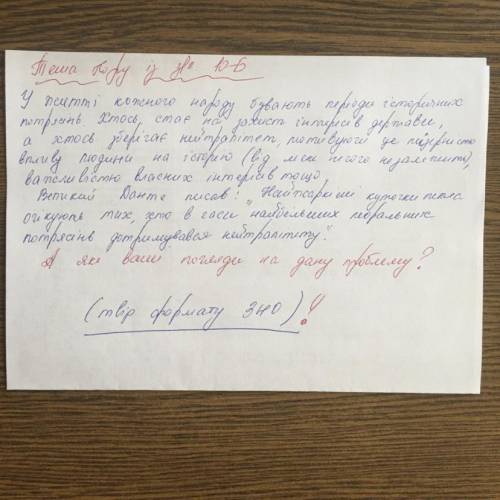 Тема твору із 10-Б
У житті кожного народу бувають періоди історичних
потрясінь. Хтось, стає на захист інтересів держави,
а хтось зберігає нейтралітет, мотивуючи це
впливу людини на історію (від мене нічого не залежить),
важливістю власних інтересів тощо.
Великий Данте писав: "Найжаркіші куточки пекла
очікують тих, хто в часи найбільших моральних
потрясінь дотримувався нейтралітету".
А які ваші погляди на дану проблему?
(твір формату ЗНО)!